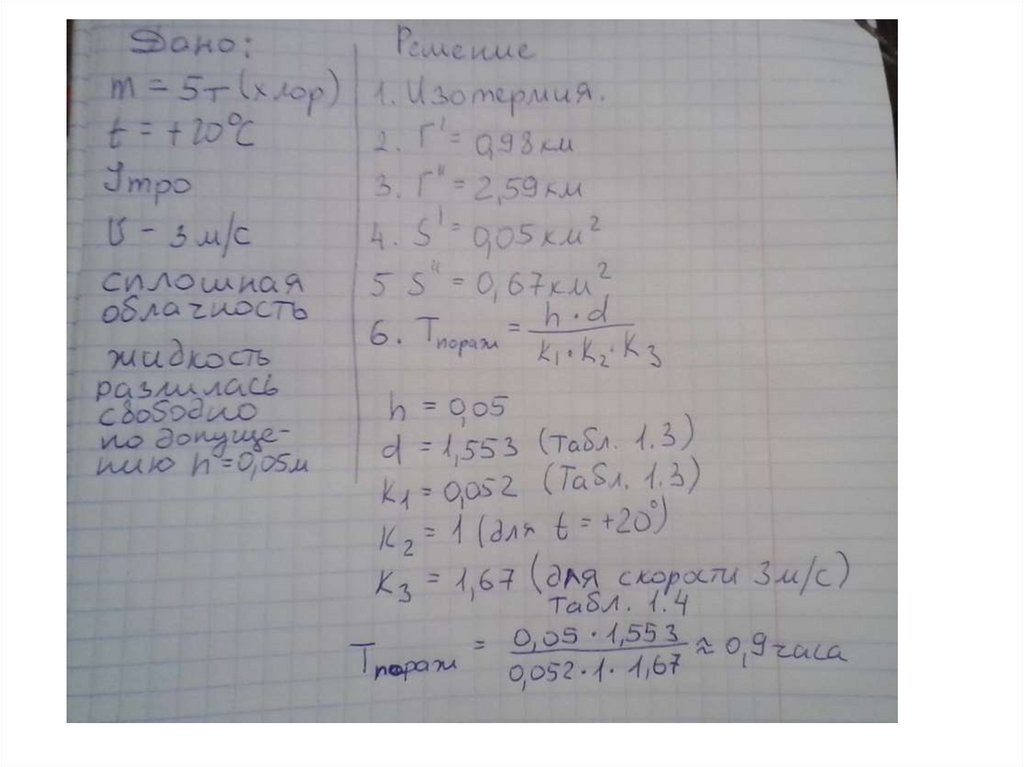 Дано:
m = 5т (хлор)
t = +20°C
Утро
V - 3 м/с
сплошная
облачность
жидкость
разлилась
свободно
по допуще-
нию h = 0,05м
Решение
1. Изотермия.
2. Г' = 0,93 км
3. Г" = 2,59 км
4. S' = 0,05 км²
5 S" = 0,67 км²
6. Tпораж = h · d / K₁ · K₂ · K₃
h = 0,05
d = 1,553 (табл. 1.3)
K₁ = 0,052 (Табл. 1.3)
K₂ = 1 (для t = +20°)
K₃ = 1,67 (для скорости 3 м/с)
табл. 1.4
Tпораж = 0,05 · 1,553 / 0,052 · 1 · 1,67 ≈ 0,9 часа